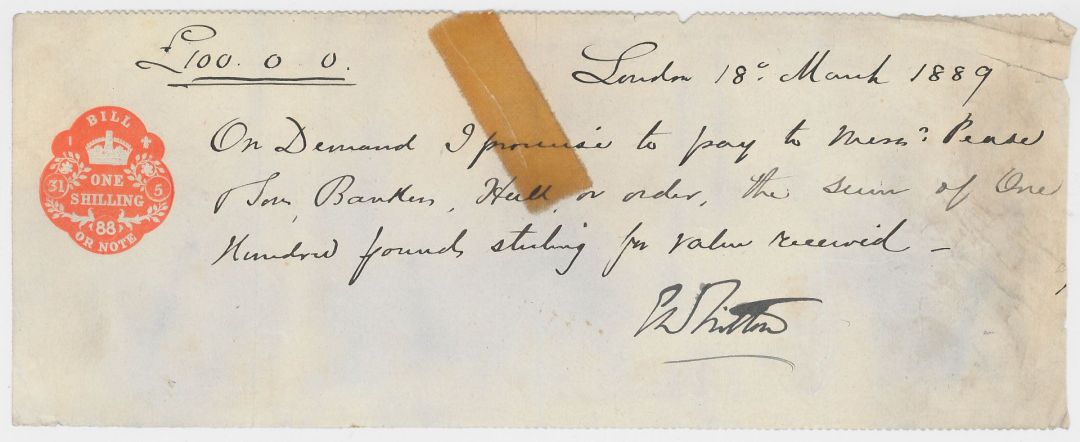 £100. 0 0.
London 18° March 1889
BILL
31 ONE 5
SHILLING
88
OR NOTE
On Demand I promise to pay to Mess:rs Pease
& Sons, Bankers, Hull, or order, the sum of One
Hundred pounds sterling for value received —